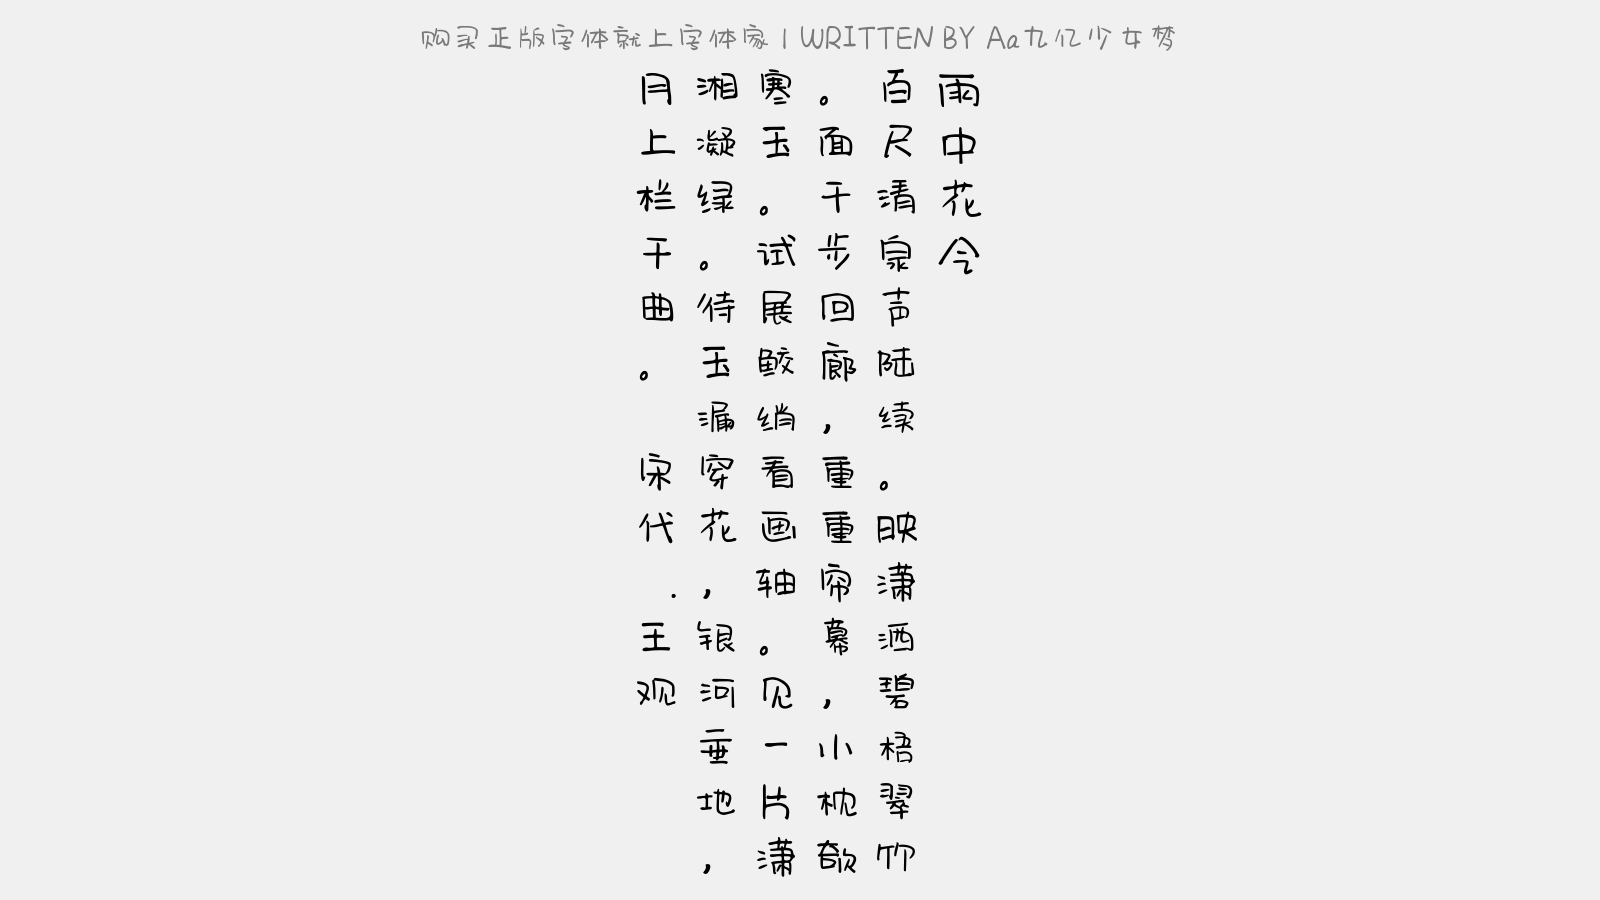 购买正版字体就上字体家 | WRITTEN BY Aa九亿少女梦
雨中花令
百尺清泉声陆续。映潇洒碧梧翠竹
。面千步回廊，重重帘幕，小枕欹
寒玉。试展鲛绡看画轴。见一片潇
湘凝绿。待玉漏穿花，银河垂地，
月上栏干曲。 宋代.王观